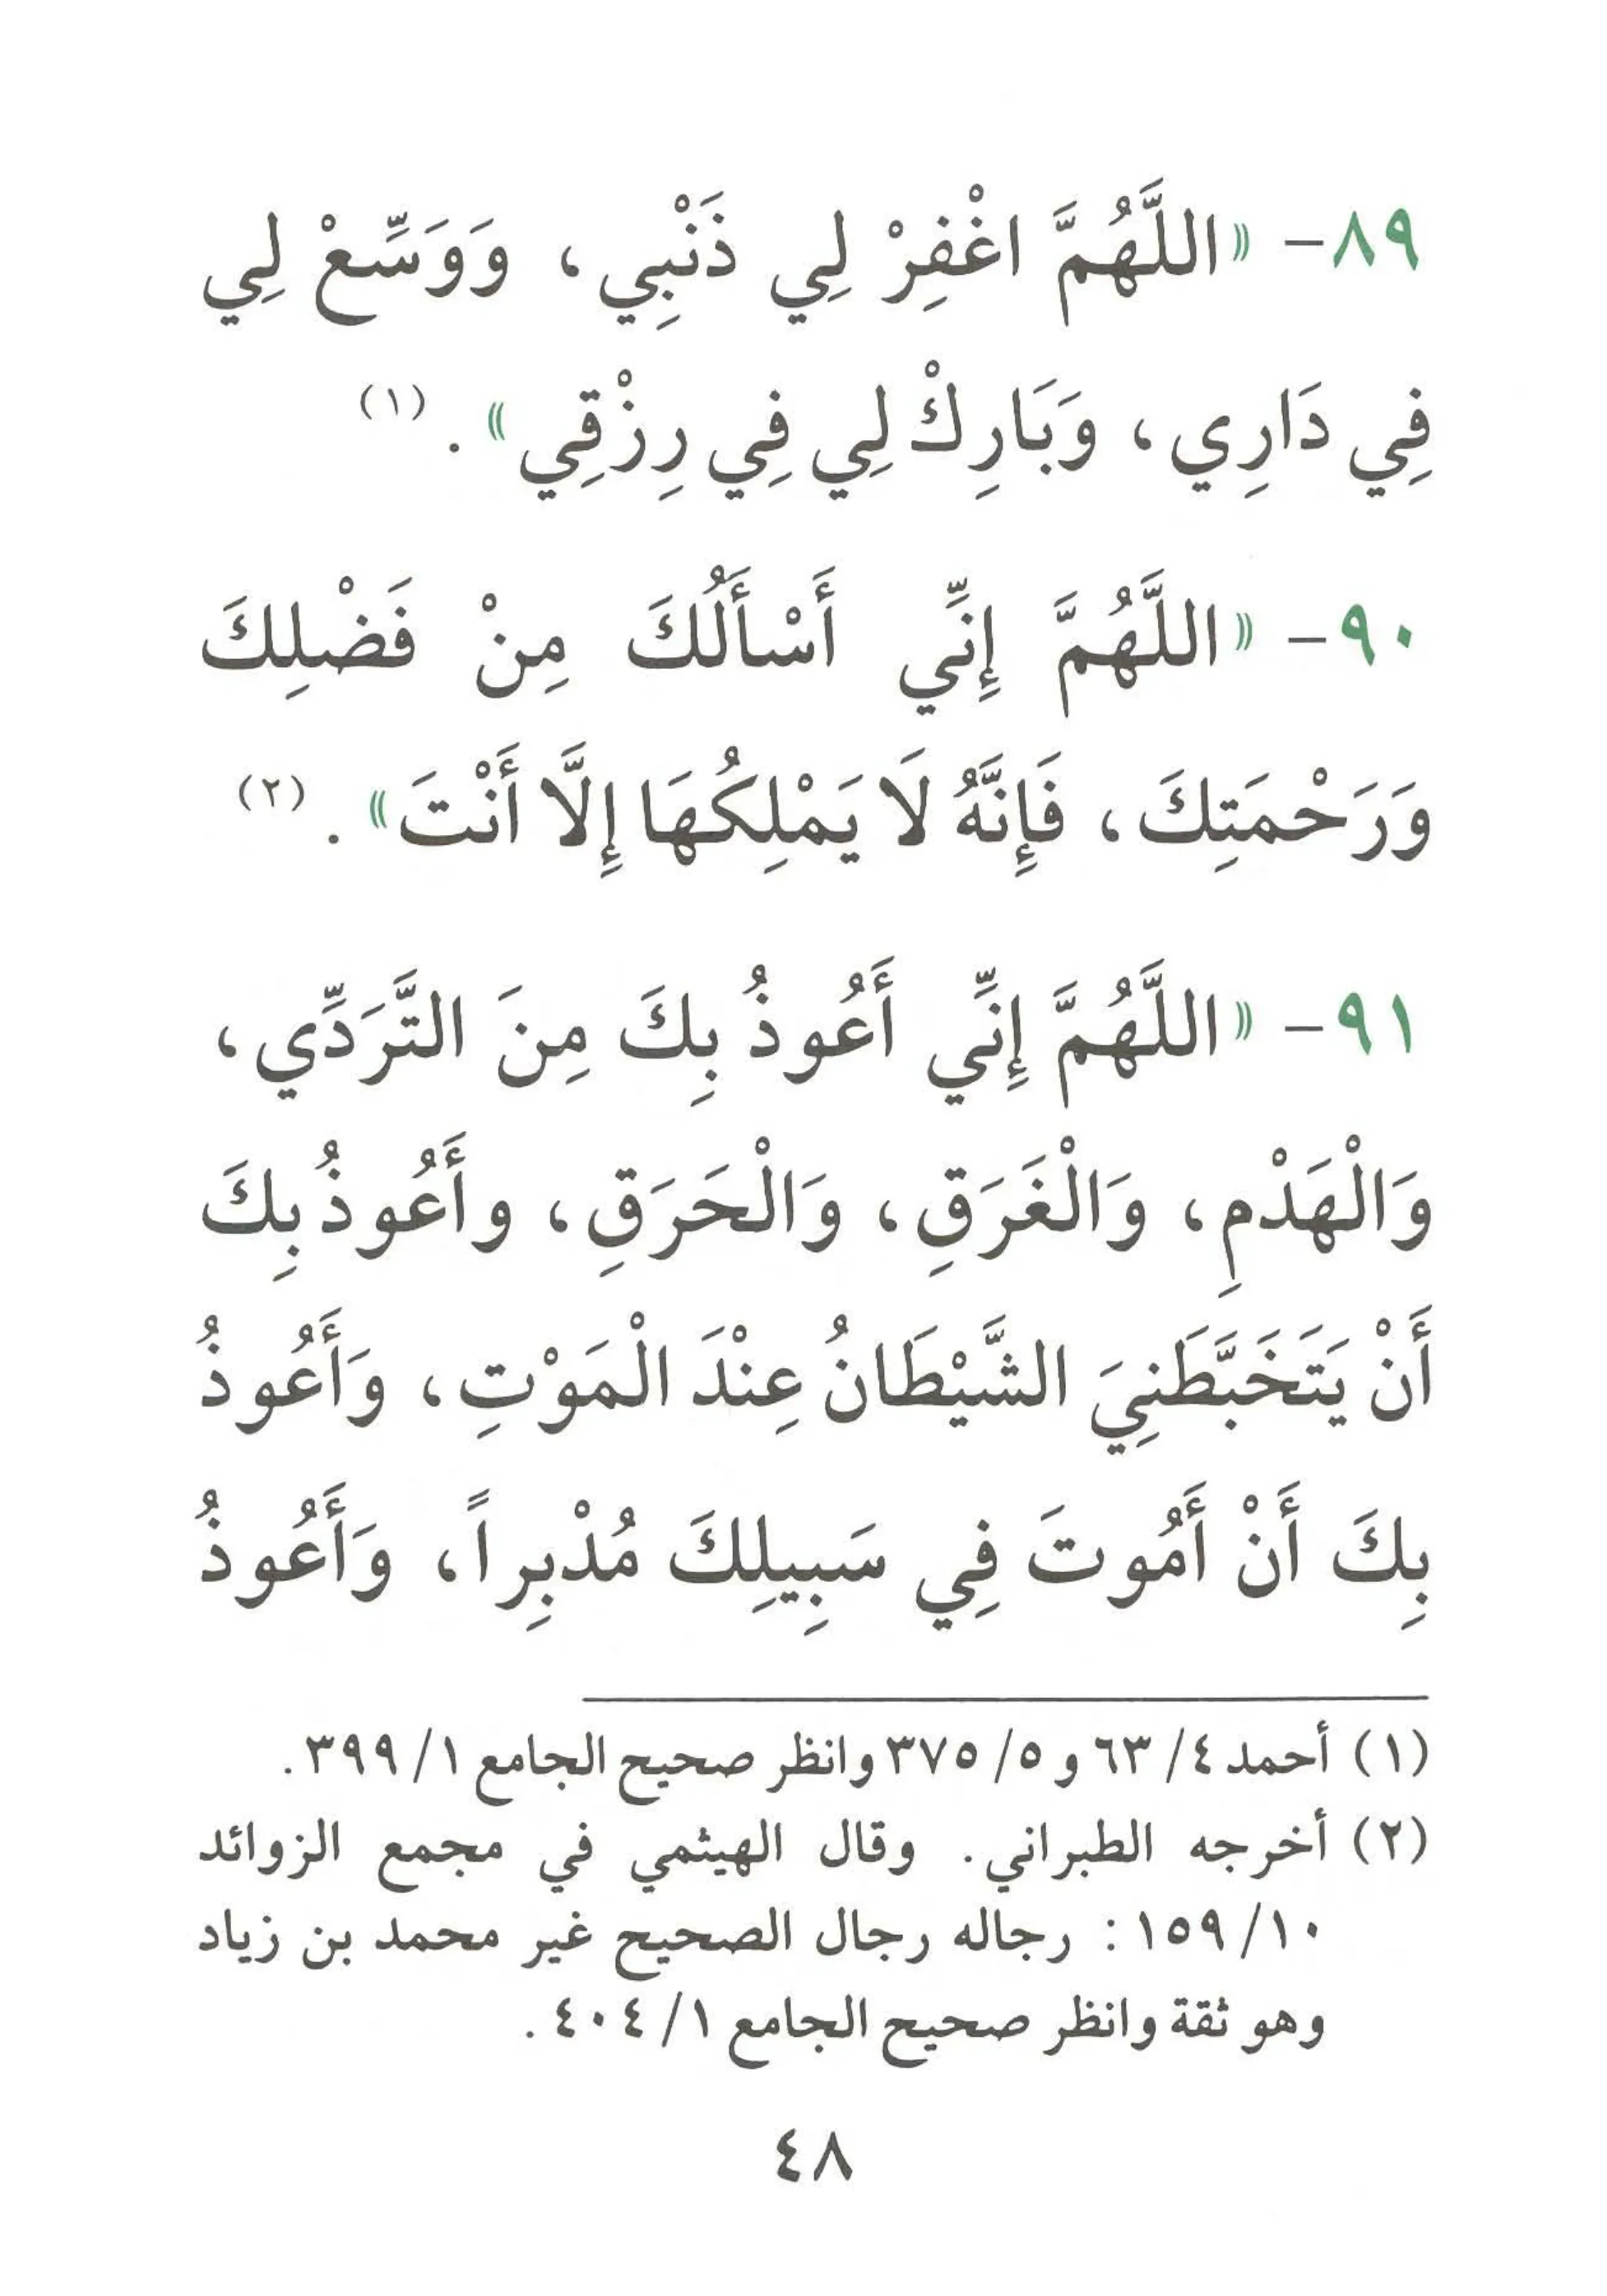 ٨٩- «اللَّهُمَّ اغْفِرْ لِي ذَنْبِي، وَوَسِّعْ لِي
فِي دَارِي، وَبَارِكْ لِي فِي رِزْقِي» . (١)
٩٠- «اللَّهُمَّ إِنِّي أَسْأَلُكَ مِنْ فَضْلِكَ
وَرَحْمَتِكَ، فَإِنَّهُ لَا يَمْلِكُهَا إِلَّا أَنْتَ» . (٢)
٩١- «اللَّهُمَّ إِنِّي أَعُوذُ بِكَ مِنَ التَّرَدِّي،
وَالْهَدْمِ، وَالْغَرَقِ، وَالْحَرَقِ، وأَعُوذُ بِكَ
أَنْ يَتَخَبَّطَنِيَ الشَّيْطَانُ عِنْدَ الْمَوْتِ، وَأَعُوذُ
بِكَ أَنْ أَمُوتَ فِي سَبِيلِكَ مُدْبِراً، وَأَعُوذُ
(١) أحمد ٤/ ٦٣ و ٥/ ٣٧٥ وانظر صحيح الجامع ١/ ٣٩٩.
(٢) أخرجه الطبراني. وقال الهيثمي في مجمع الزوائد
١٠/ ١٥٩: رجاله رجال الصحيح غير محمد بن زياد
وهو ثقة وانظر صحيح الجامع ١/ ٤٠٤.
٤٨